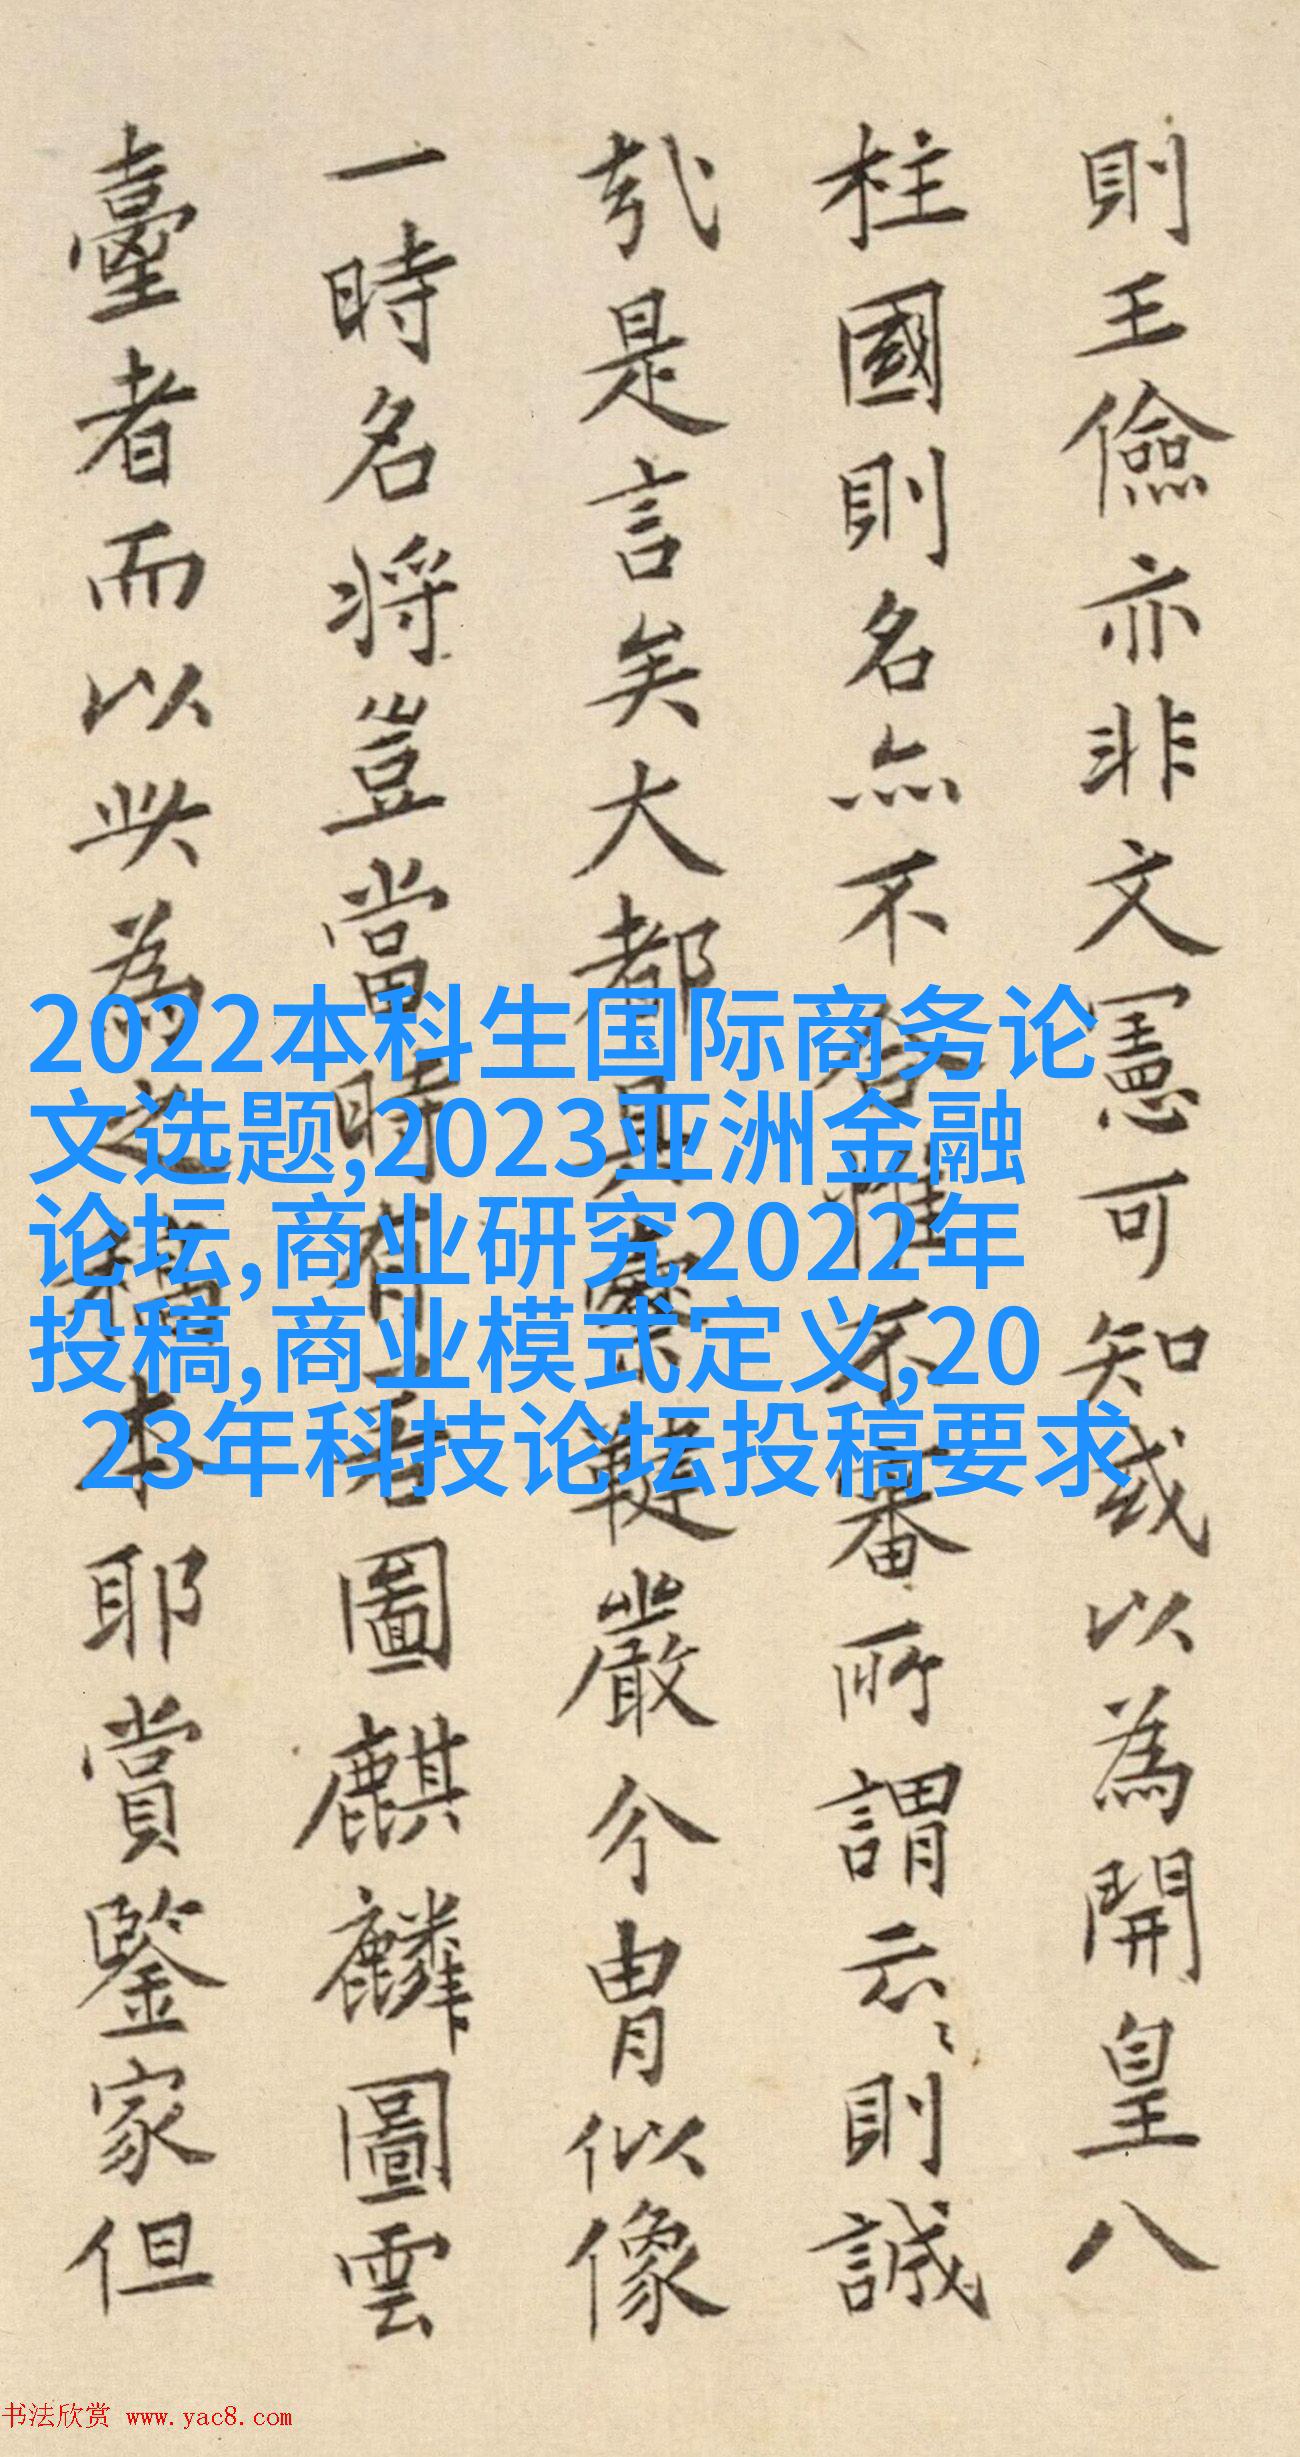 則王儉亦非文憲可知或以為開皇八
柱國則名不合惟不審所謂云〻則誠
哉是言矣大都具櫜鞬嚴介冑似像
一時名將豈當時有圖麒麟圖雲
臺者而以此為之稿本耶賞鑒家但
2022本科生国际商务论
文选题,2023亚洲金融
论坛,商业研究2022年
投稿,商业模式定义,20
23年科技论坛投稿要求
书法欣赏 www.yac8.com